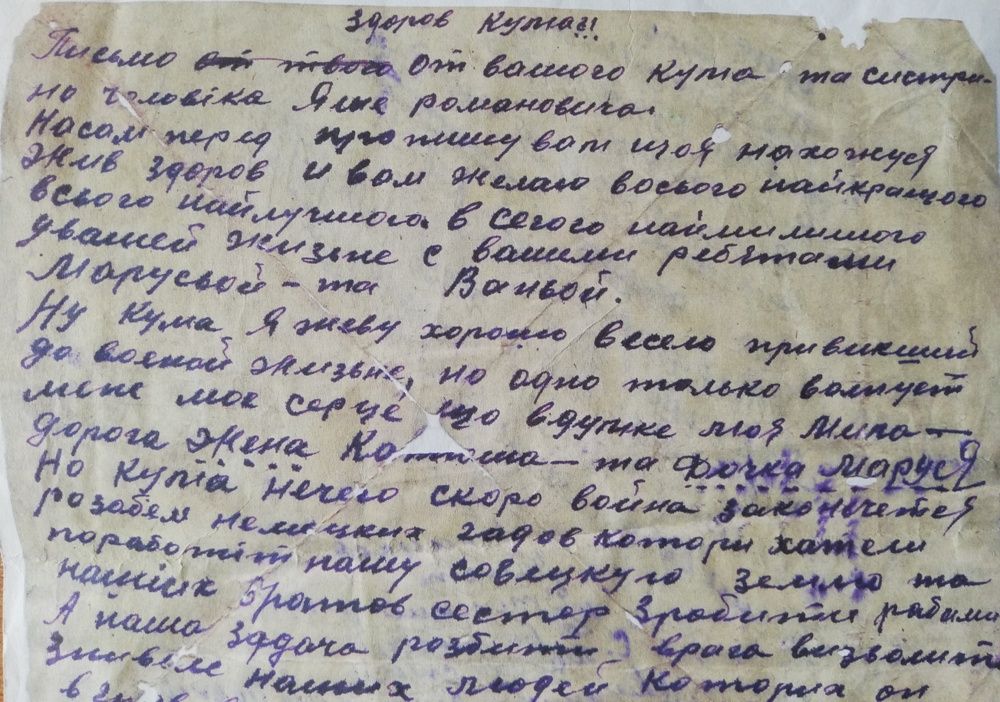 Здоров Кума!!
Письмо от твого от вашого кума та систри-
но чоловіка Яше романовича.
Насам перед пропишу вам щоя нахожуся
Жив здоров и вам желаю восього найкращого
всього найлучшого в сегого наймилишого
у вашей жизне с вашими ребятами
Марусьой - та Ваньой.
Ну кума я живу хорошо весело привикший
до военой жизьне, но одно только волнует
мене мое серце що вдушке моя Мила —
дорога Жена — та Дочка Маруся
Но кума нечего скоро война законечется
розобем немецких гадов котори хатели
поработіт нашу совецкую землю та
наших братов сестер зробити рабами
А наша задача розбити врага визволити
наших людей Которих он